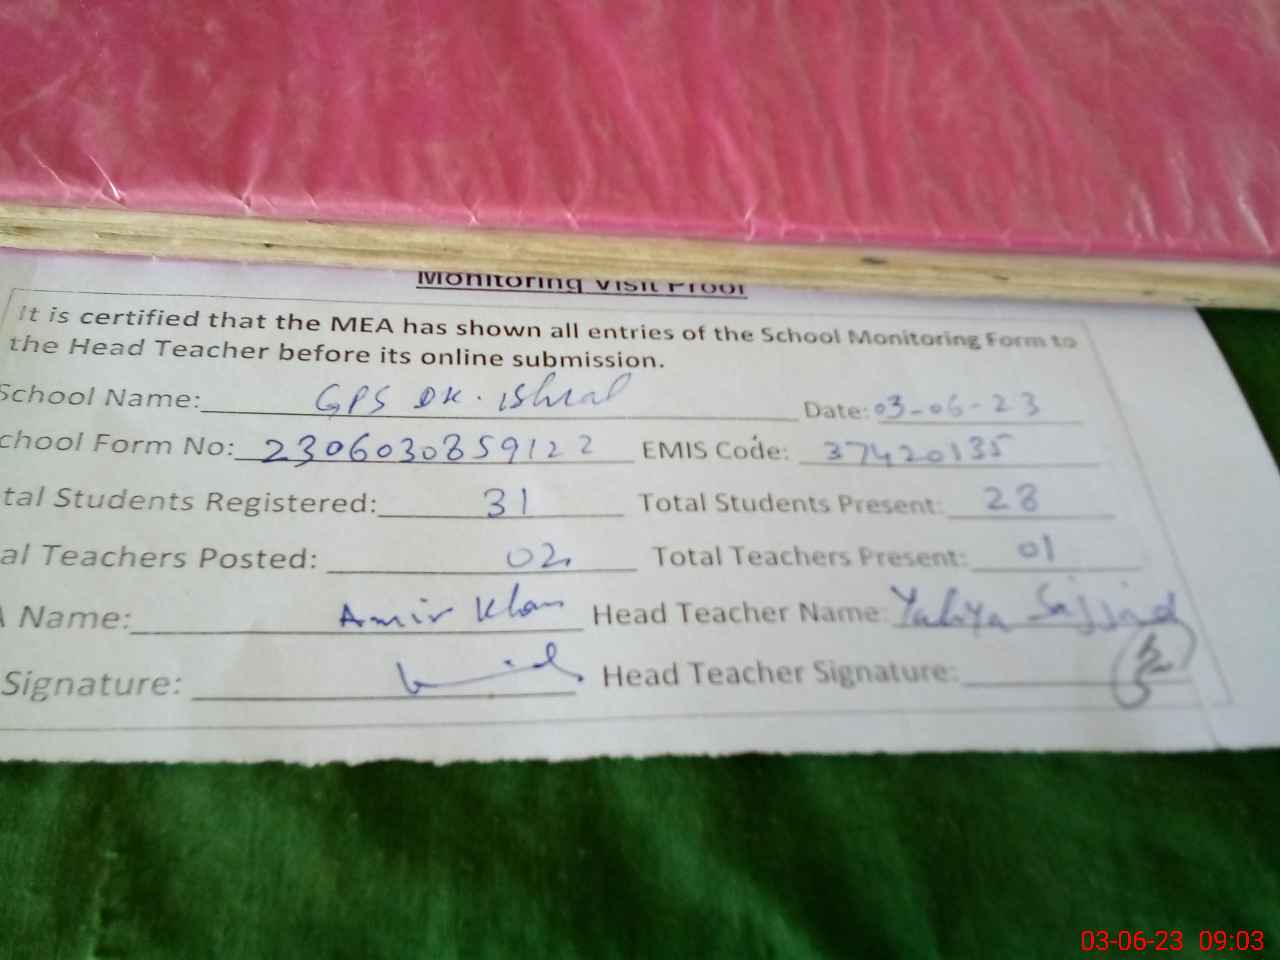 Monitoring Visit Proof
It is certified that the MEA has shown all entries of the School Monitoring Form to
the Head Teacher before its online submission.
School Name: GPS DK. Date: 03-06-23
chool Form No: 2306030859122 EMIS Code: 37420135
tal Students Registered: 31 Total Students Present: 28
al Teachers Posted: 02 Total Teachers Present: 01
Name: Amir Khan Head Teacher Name: Yahya Sajjad
Signature: Head Teacher Signature:
03-06-23 09:03